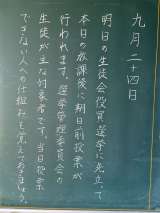 九月二十四日
明日の生徒会役員選挙に先立って
本日の放課後に期日前投票が
行われます。選挙管理委員会の
生徒が主な対象者です。当日投票
できない人への仕組みも覚えておきましょう。